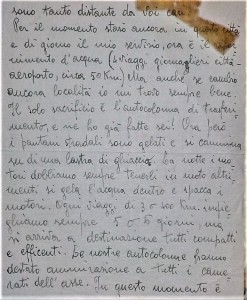 sono tanto distante da voi cari
Per il momento starò ancora in questa città
e di giorno il mio servizio, ora è il rifor
nimento d'acqua (4 viaggi giornaglieri città-
aeroporto, circa 50 Km). Ma anche se cambio
ancora località io mi trovo sempre bene.
Il solo sacrificio è l'autocolonna di trasferi-
mento, e ne ho già fatte sei! Ora però
i pantani stradali sono gelati e si cammina
su di una lastra di ghiaccio. La notte i mo-
tori dobbiamo sempre tenerli in moto altri-
menti si gela l'acqua dentro e spacca i
motori. Ogni viaggi di 3 o 400 Km. impie-
ghiamo sempre 5 o 6 giorni, ma
si arriva a destinazione tutti compatti
e efficenti. Le nostre autocolonne hanno
destato ammirazione a tutti i came
rati dell'asse. In questo momento è